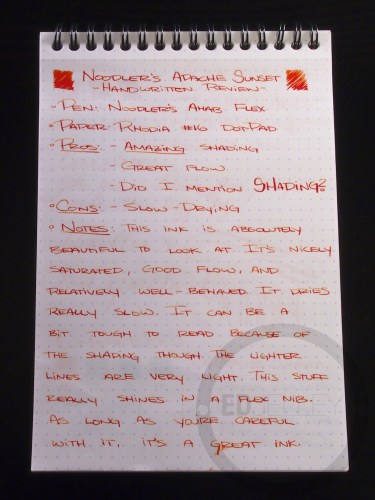 NOODLER'S APACHE SUNSET
- HANDWRITTEN REVIEW -
• PEN: NOODLER'S AHAB FLEX
• PAPER: RHODIA #16 DOTPAD
• PROS: - AMAZING SHADING
- GREAT FLOW
- DID I MENTION SHADING?
• CONS: - SLOW-DRYING
• NOTES: THIS INK IS ABSOLUTELY
BEAUTIFUL TO LOOK AT. IT'S NICELY
SATURATED, GOOD FLOW, AND
RELATIVELY WELL-BEHAVED. IT DRIES
REALLY SLOW. IT CAN BE A
BIT TOUGH TO READ BECAUSE OF
THE SHADING THOUGH. THE LIGHTER
LINES ARE VERY LIGHT. THIS STUFF
REALLY SHINES IN A FLEX NIB.
AS LONG AS YOU'RE CAREFUL
WITH IT, IT'S A GREAT INK.